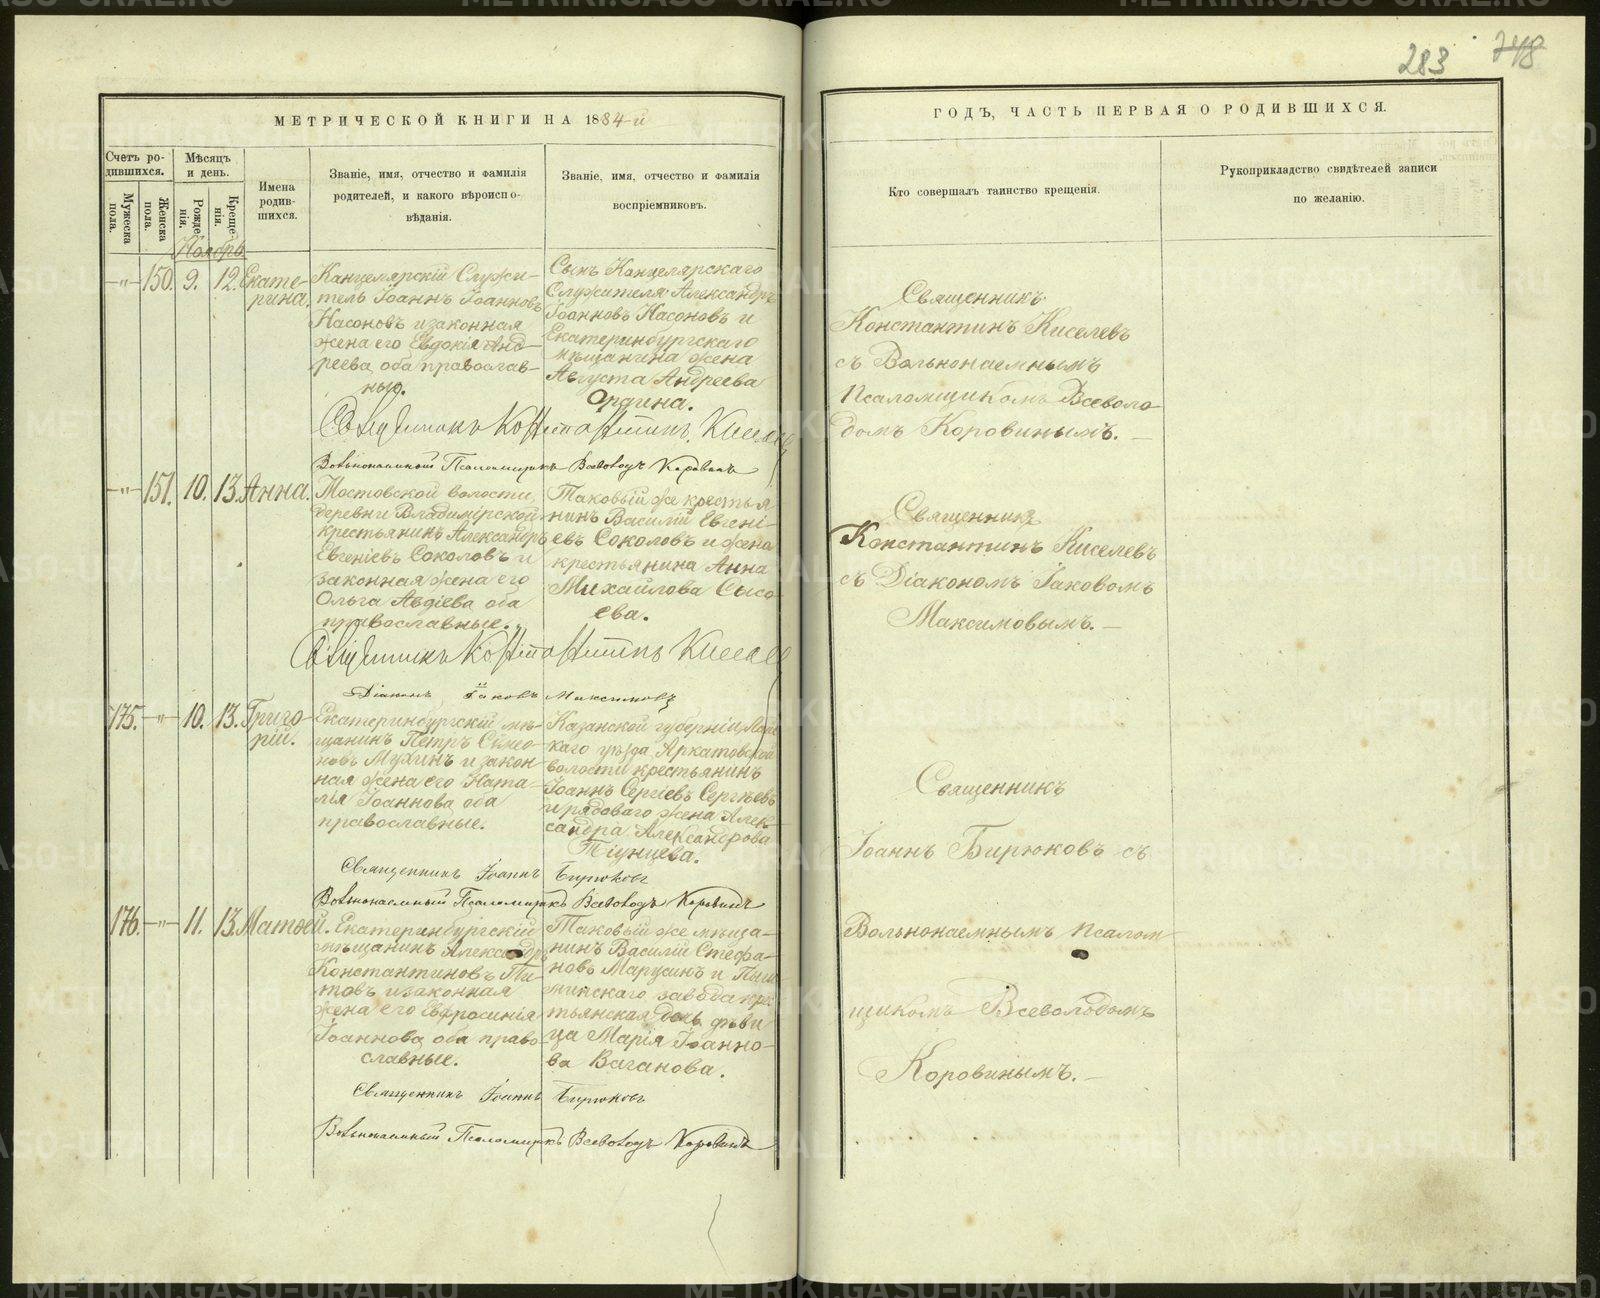 283 748
МЕТРИЧЕСКОЙ КНИГИ НА 1884-й
ГОДЪ, ЧАСТЬ ПЕРВАЯ О РОДИВШИХСЯ.
Счетъ ро-
дившихся.
Мѣсяцъ
и день.
Мужеска
пола.
Женска
пола.
Рожде-
нія.
Креще-
нія.
Имена
родив-
шихся.
Званіе, имя, отчество и фамилія
родителей, и какого вѣроиспо-
вѣданія.
Званіе, имя, отчество и фамилія
воспріемниковъ.
Кто совершалъ таинство крещенія.
Рукоприкладство свидѣтелей записи
по желанію.
Ноябрь
-"- 150. 9. 12. Екате-
рина.
Канцелярскій Служи-
тель Іоаннъ Іоанновъ
Насоновъ и законная
жена его Евдокія Анд-
реева, оба православ-
ныя.
Сынъ Канцелярскаго
Служителя Александръ
Іоанновъ Насоновъ и
Екатеринбургскаго
мѣщанина жена
Августа Андреева
Священникъ
Константинъ Киселевъ
съ Вольнонаемнымъ
Псаломщикомъ Всеволо-
домъ Коровинымъ.
Священникъ Константинъ Киселевъ
Вольнонаемный Псаломщикъ Всеволодъ Коровинъ
-"- 151. 10. 13. Анна.
Мостовской волости,
деревни Владимірской
крестьянинъ Александръ
Евгеніевъ Соколовъ и
законная жена его
Ольга Авдіева оба
православные.
Таковый же крестья
нинъ Василій Евгені-
евъ Соколовъ и жена
крестьянина Анна
Михайлова Сысо-
ева.
Священникъ
Константинъ Киселевъ
съ Діакономъ Іаковомъ
Максимовымъ.
Священникъ Константинъ Киселев
Діаконъ Іаковъ Максимовъ
175. -"- 10. 13. Григо-
рій.
Екатеринбургскій мѣ-
щанинъ Петръ Симео-
новъ Мухинъ и закон
ная жена его Ната-
лія Іоаннова оба
православные.
Казанской губерніи,
каго уѣзда
волости крестьянинъ
Іоаннъ Сергіевъ Сергѣевъ
и рядоваго жена Алек-
сандра Александрова
Тіунцева.
Священникъ
Іоаннъ Бирюковъ съ
Вольнонаемнымъ Псалом
щикомъ Всеволодомъ
Коровинымъ.
Священникъ Іоаннъ Бирюковъ
Вольнонаемный Псаломщикъ Всеволодъ Коровинъ
176. -"- 11. 13. Матѳей.
Екатеринбургскій
мѣщанинъ Александръ
Константиновъ Ти-
товъ и законная
жена его Евфросинія
Іоаннова, оба право
славные.
Таковый же мѣща-
нинъ Василій Стефа-
новъ Марусинъ и Пыш-
минскаго завода крес
тьянская дочь дѣви
ца Марія Іоанно-
ва Ваганова.
Священникъ Іоаннъ Бирюковъ
Вольнонаемный Псаломщикъ Всеволодъ Коровинъ
METRIKI.GASO-URAL.RU